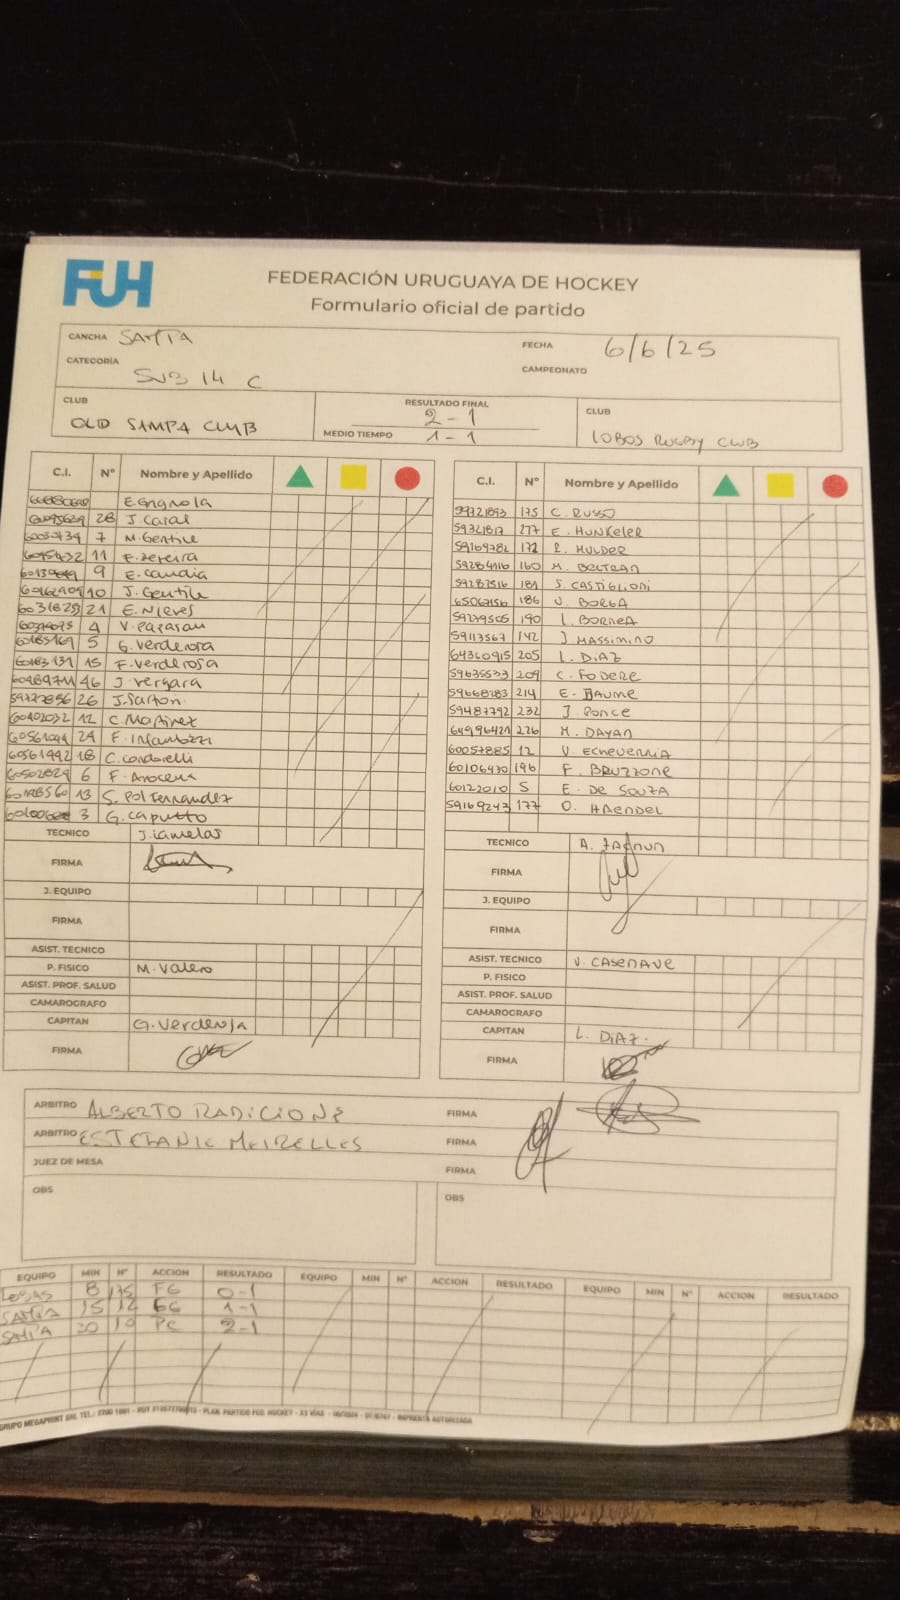 FUH
FEDERACIÓN URUGUAYA DE HOCKEY
Formulario oficial de partido
CANCHA SAMPA FECHA 6/6/25
CATEGORÍA SUB 14 C CAMPEONATO
CLUB RESULTADO FINAL CLUB
OLD SAMPA CLUB 2-1 LOBOS RUGBY CLUB
MEDIO TIEMPO 1-1
C.I. Nº Nombre y Apellido
E Grignola
28 J. Caral
7 M. Gentile
11 F. Pereira
9 E. Candia
10 J. Gentile
21 E. Nieves
4
60183169 5 G. Verderosa
60183131 15 F. Verderosa
46 J. Vergara
59727856 26 J. Sarton
60402032 12 C. Martinez
60561044 24 F. Infantozzi
60561442 18 C. Condarelli
60502829 6 F. Arocena
60198560 13 S. Pol Fernandez
3 G. Caputto
TECNICO J. Lamelas
FIRMA
J. EQUIPO
FIRMA
ASIST. TECNICO
P. FISICO M. Valero
ASIST. PROF. SALUD
CAMAROGRAFO
CAPITAN G. Verderosa
FIRMA
C.I. Nº Nombre y Apellido
59721893 175 C. RUSSO
59321817 277 E. HUNKELER
59169782 172 R. MULDER
59284116 160 M. BELTRAN
59287516 181 S. CASTIGLIONI
65067156 186 J. BORBA
59279505 190 L. BORNEA
59117567 142 J. MASSIMINO
64360915 205 L. DIAZ
59635533 209 C. FODERE
59668783 214 E. BAUME
59487792 232 J. PONCE
64996421 226 M. DAYAN
60057885 12 V. ECHEVERRIA
60106430 196 F. BRUZZONE
60122010 5 E. DE SOUZA
59169243 177 O. HAENDEL
TECNICO A.
FIRMA
J. EQUIPO
FIRMA
ASIST. TECNICO V. CASENAVE
P. FISICO
ASIST. PROF. SALUD
CAMAROGRAFO
CAPITAN L. DIAZ.
FIRMA
ARBITRO ALBERTO RADICIONE FIRMA
ARBITRO ESTEFANIE MEIRELLES FIRMA
JUEZ DE MESA FIRMA
OBS OBS
EQUIPO MIN Nº ACCION RESULTADO EQUIPO MIN Nº ACCION RESULTADO EQUIPO MIN Nº ACCION RESULTADO
LOBAS 8 175 FG 0-1
SAMPA 15 12 FG 1-1
SAMPA 30 10 PC 2-1
GRUPO MEGAPRINT SRL TEL.: - PLAN. PARTIDO FED. HOCKEY - X3 VIAS - IMPRENTA AUTORIZADA